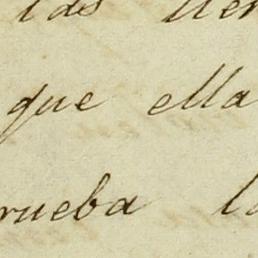 las
que ella
rueba